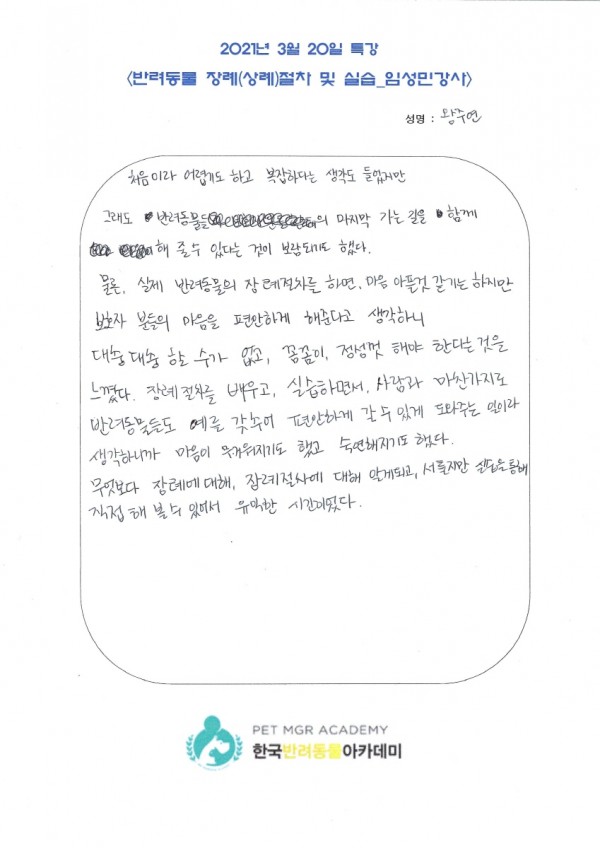 2021년 3월 20일 특강
<반려동물 장례(상례)절차 및 실습_임성민강사>
성명 : 왕주연
처음이라 어렵기도 하고 복잡하다는 생각도 들었지만
그래도 반려동물들의 마지막 가는 길을 함께
해 줄 수 있다는 것이 보람되기도 했다.
물론, 실제 반려동물의 장례절차를 하면, 마음 아플것 같기는 하지만
보호자 분들의 마음을 편안하게 해준다고 생각하니
대충대충 할 수가 없고, 꼼꼼이, 정성껏 해야 한다는 것을
느꼈다. 장례절차를 배우고, 실습하면서, 사람과 마찬가지로
반려동물들도 예를 갖추어 편안하게 갈 수 있게 도와주는 일이라
생각하니까 마음이 무거워지기도 했고 숙연해지기도 했다.
무엇보다 장례에 대해, 장례절차에 대해 알게되고, 서툴지만 실습을 통해
직접 해 볼 수 있어서 유익한 시간이었다.
PET MGR ACADEMY
한국반려동물아카데미